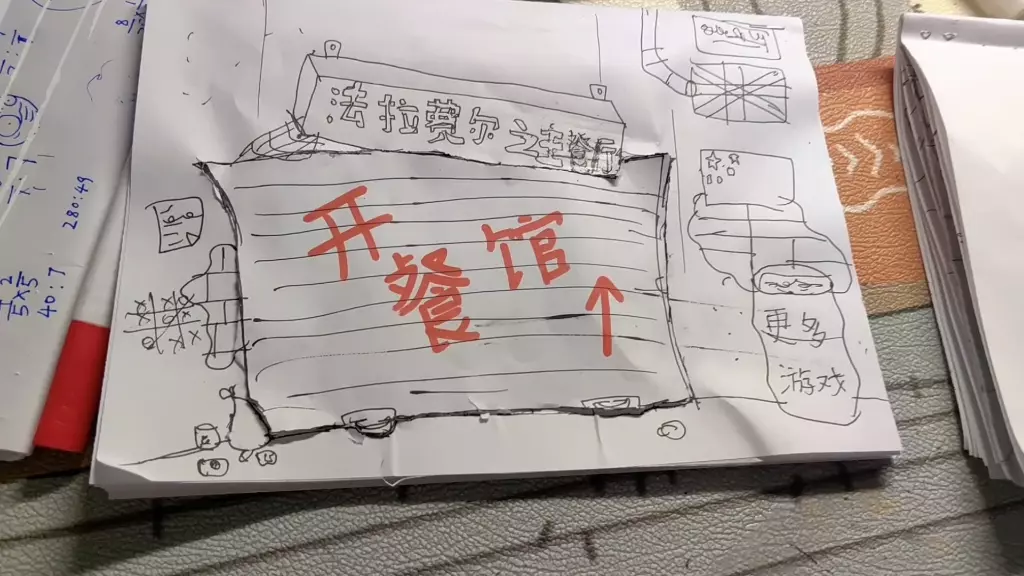 法拉费尔之王餐厅
开餐馆
更多
游戏
280:49
40:7